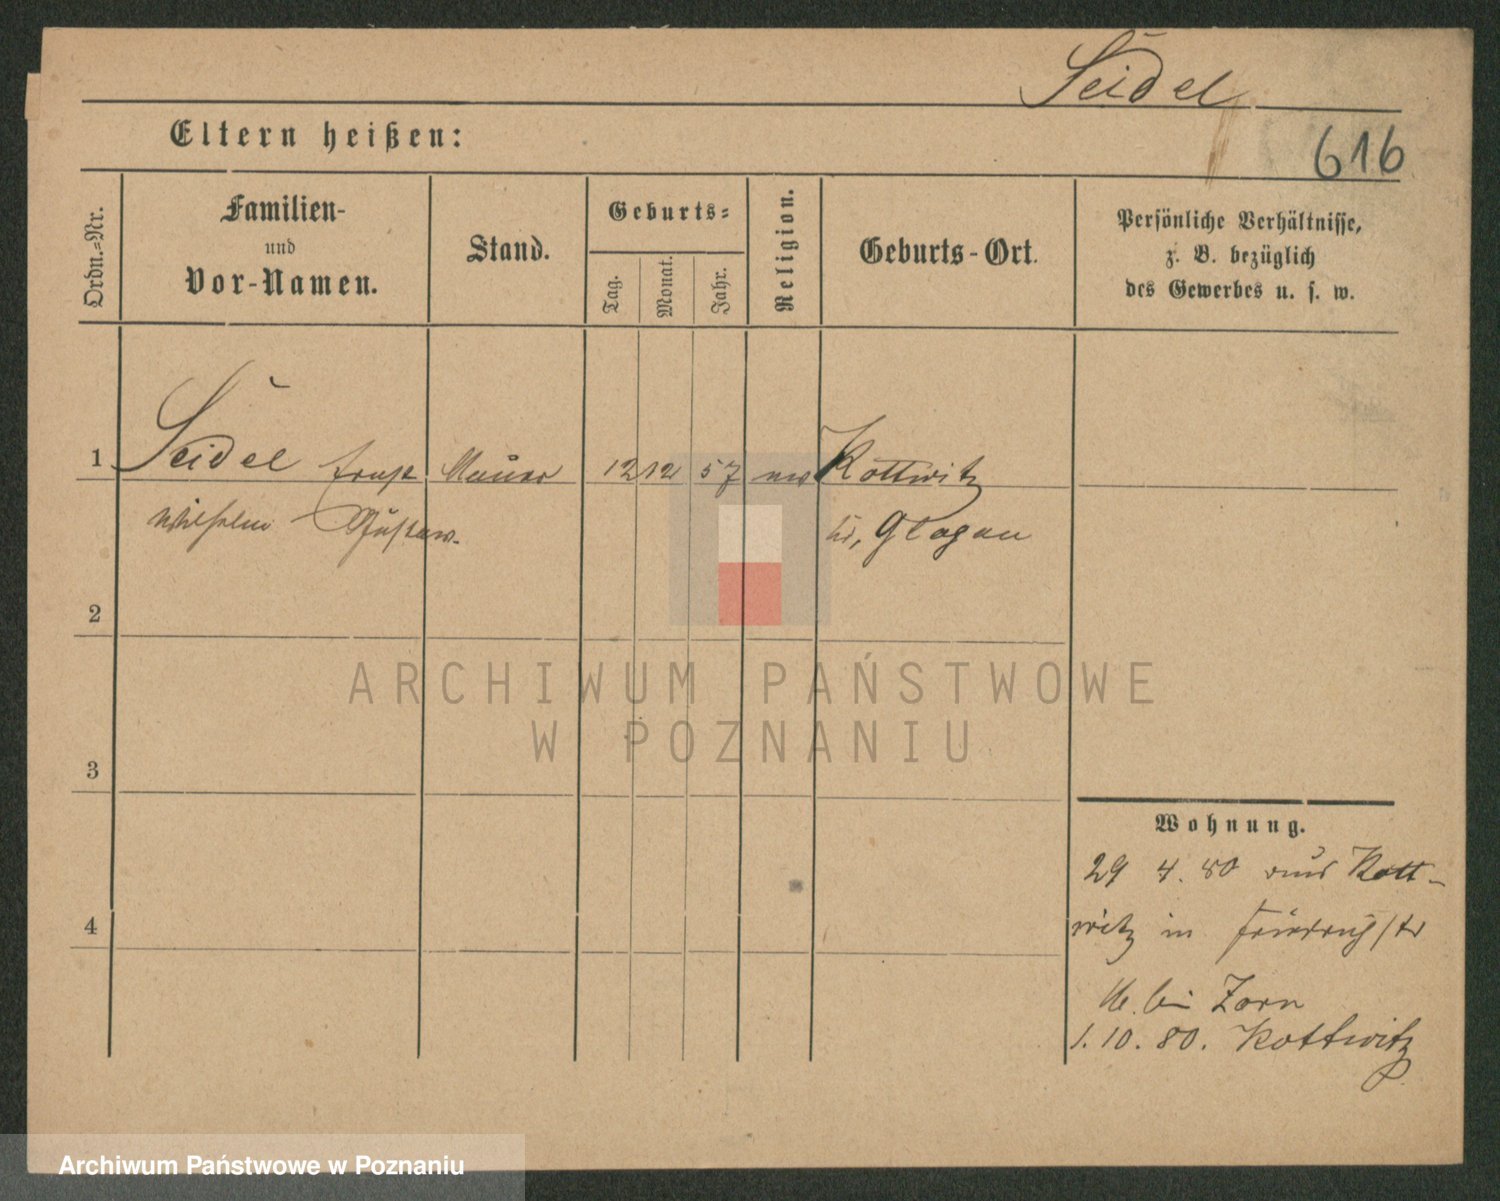 Seidel
Eltern heißen:
616
Ordn.=Nr.
Familien-
und
Vor-Namen.
Stand.
Geburts=
Tag.
Monat.
Jahr.
Religion.
Geburts-Ort.
Persönliche Verhältnisse,
z. B. bezüglich
des Gewerbes u. s. w.
1 Seidel Ernst Maurer 12 12 57 Kottwitz
Wilhelm Gustaw. Glogau
2
3
4
Wohnung.
29 4. 80 aus Kott-
witz in Friedrichstr
bei Zorn
1. 10. 80. Kottwitz
ARCHIWUM PAŃSTWOWE
W POZNANIU
Archiwum Państwowe w Poznaniu